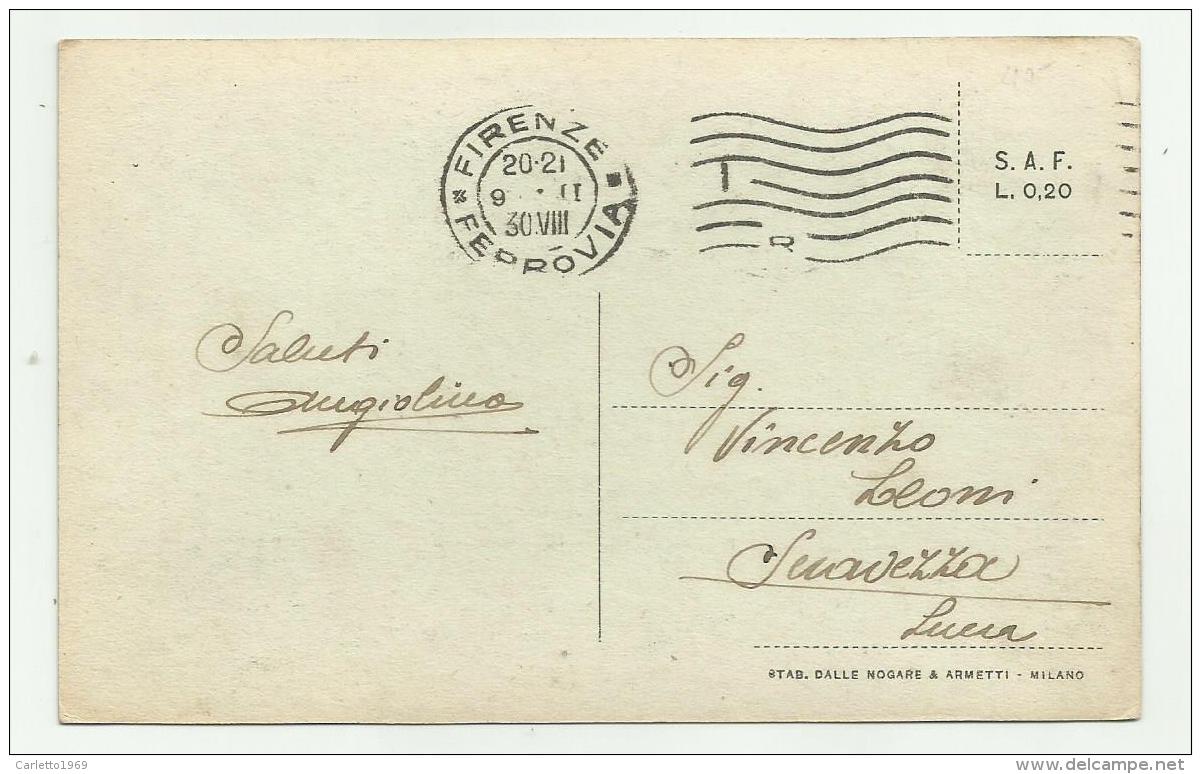 FIRENZE
20·21
9 II
30.VIII
FERROVIA
R
S. A. F.
L. 0,20
Saluti
Angiolina
Sig.
Vincenzo
Leoni
Seravezza
Lucca
STAB. DALLE NOGARE & ARMETTI - MILANO
Carletto1969
delcampe.net